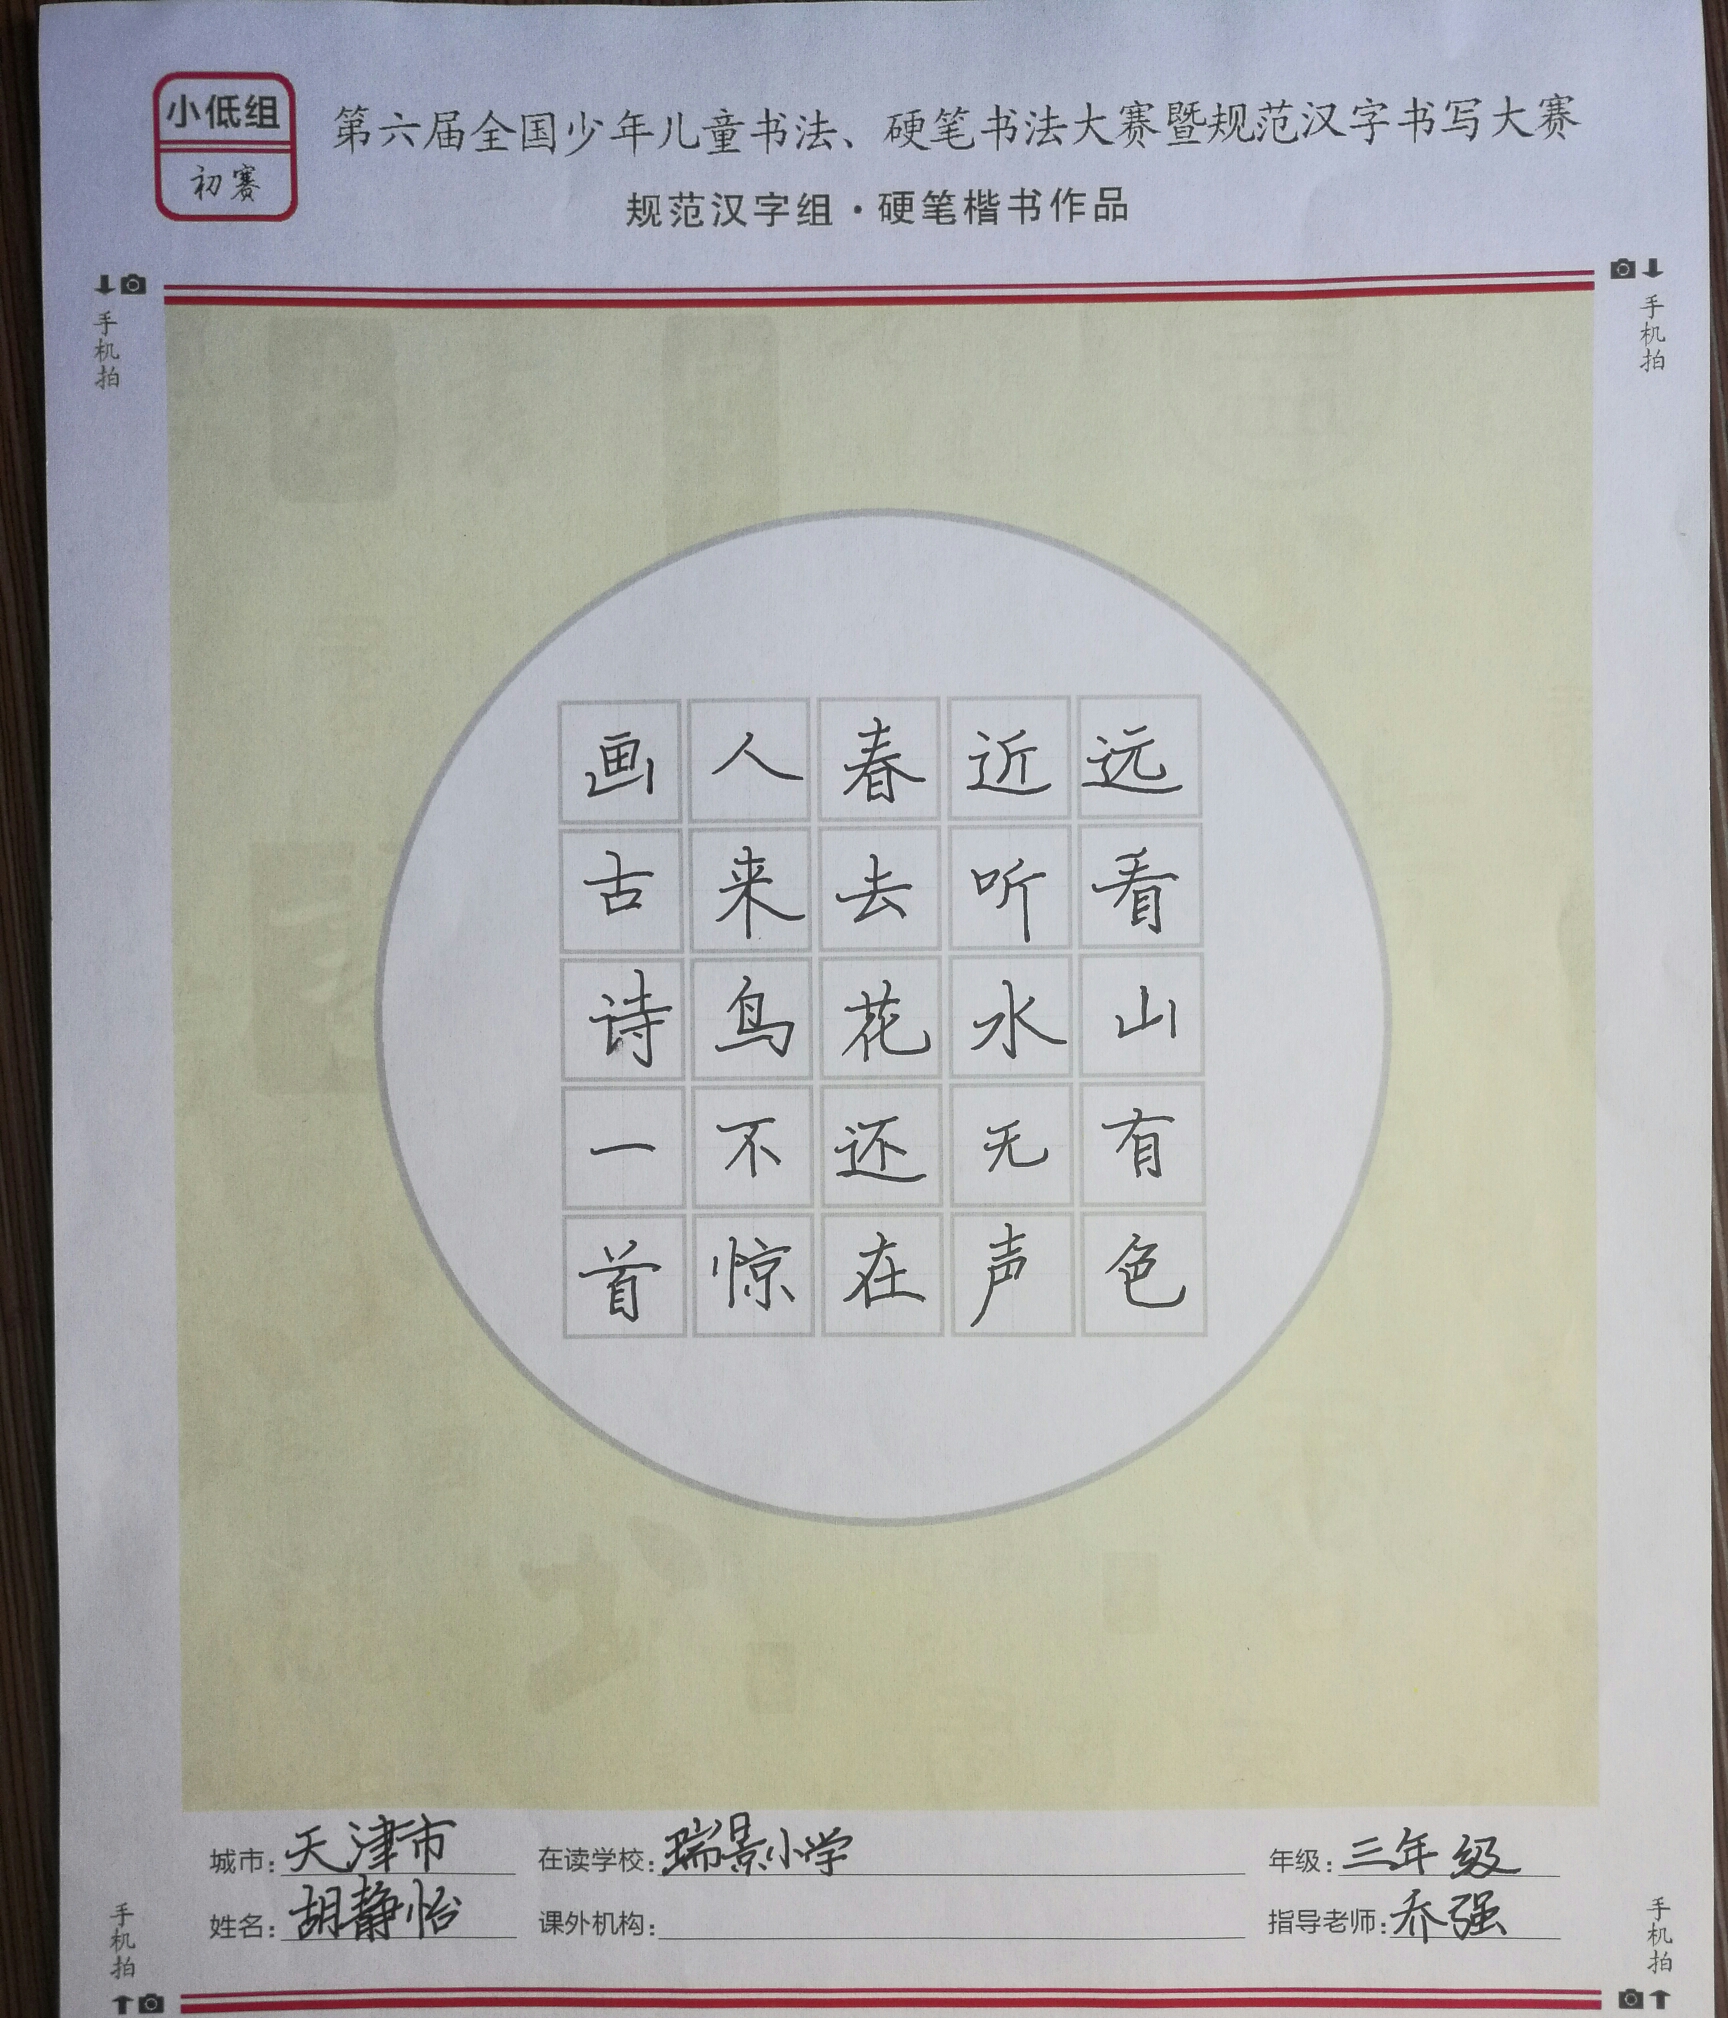 小低组
初赛
第六届全国少年儿童书法、硬笔书法大赛暨规范汉字书写大赛
规范汉字组·硬笔楷书作品
手机拍
手机拍
远看山有色
近听水无声
春去花还在
人来鸟不惊
画古诗一首
城市：天津市
在读学校：瑞景小学
年级：三年级
姓名：胡静怡
课外机构：
指导老师：乔强
手机拍
手机拍